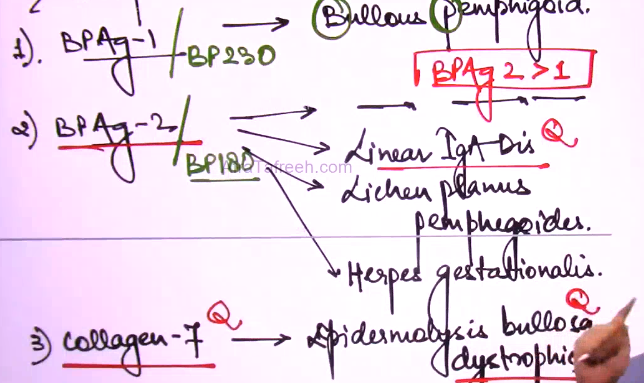 1). BPAg-1 / BP230 → Bullous pemphigoid.
BPAg 2 > 1
2) BPAg-2 / BP180 → — — —
→ Linear IgA Dis Q
→ Lichen planus
pemphegoides.
→ Herpes gestationalis.
3) Collagen-7 Q → Epidermolysis bullosa Q
dystrophic